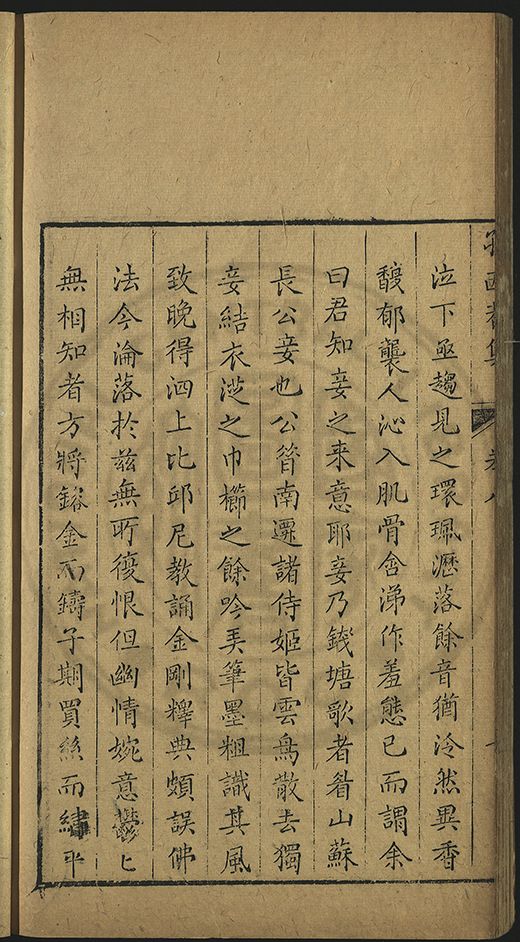 泣下亟趨見之環珮瀝落餘音猶泠然異香
馥郁襲人沁入肌骨含涕作羞態已而謂余
曰君知妾之来意耶妾乃錢塘歌者眉山蘇
長公妾也公簪南遷諸侍姬皆雲鳥散去獨
妾結衣涉之巾櫛之餘吟弄筆墨粗識其風
致晚得泗上比邱尼教誦金剛釋典頗误佛
法今淪落於兹無所復恨但幽情婉意鬱匕
無相知者方將鎔金而鑄子期買絲而繡平